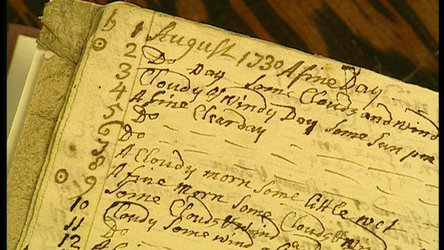 b 1 August 1730 A fine Day
2 Do Day some Clouds and wind
3 Cloudy & Windy Day some Sun
4 A fine Clear day
5 Do
6 Do
A Cloudy morn some little wet
9 A fine morn some Cloudy
10 Some Clouds & wind
11 Cloudy some wind
12 Do
A